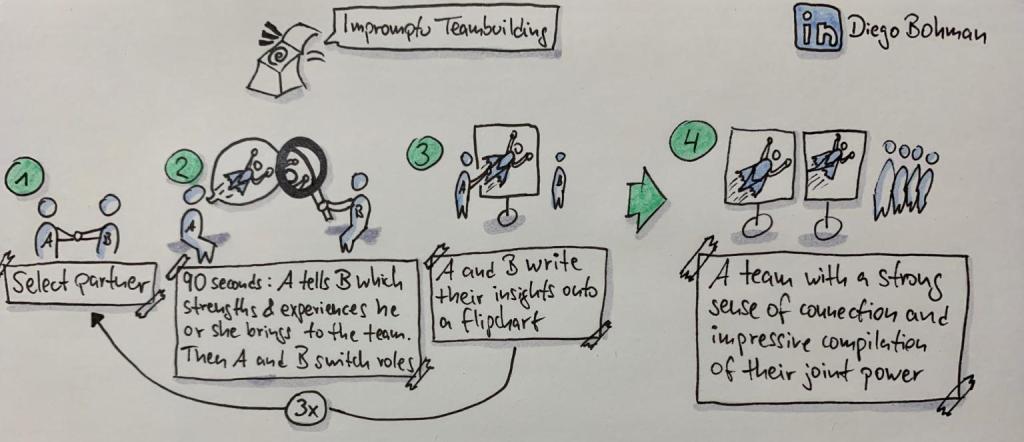 Impromptu Teambuilding
in Diego Bohman
1
A B
Select partner
2
A B
90 seconds: A tells B which
strengths & experiences he
or she brings to the team.
Then A and B switch roles
3
A A
A and B write
their insights onto
a flipchart
3x
4
A team with a strong
sense of connection and
impressive compilation
of their joint power